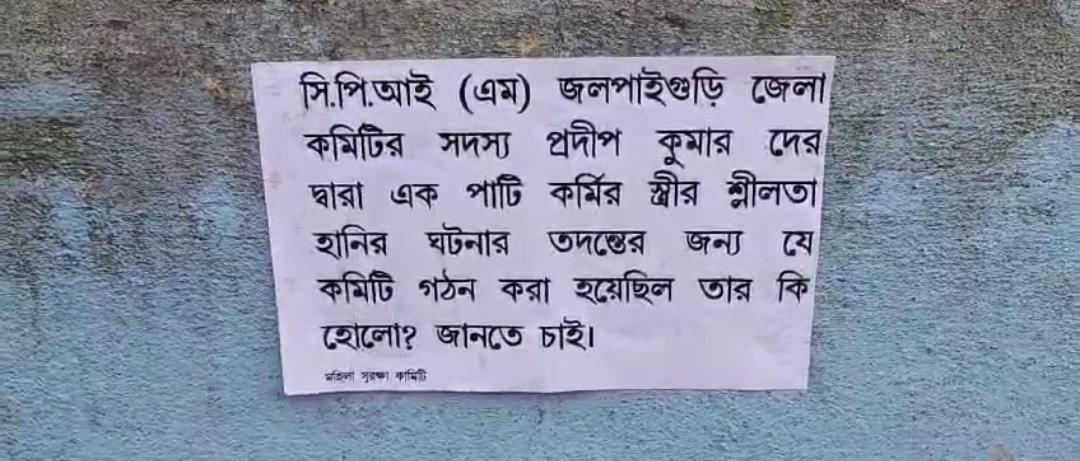 সি.পি.আই (এম) জলপাইগুড়ি জেলা
কমিটির সদস্য প্রদীপ কুমার দের
দ্বারা এক পাটি কর্মির স্ত্রীর শ্লীলতা
হানির ঘটনার তদন্তের জন্য যে
কমিটি গঠন করা হয়েছিল তার কি
হোলো? জানতে চাই।
মহিলা সুরক্ষা কামিটি